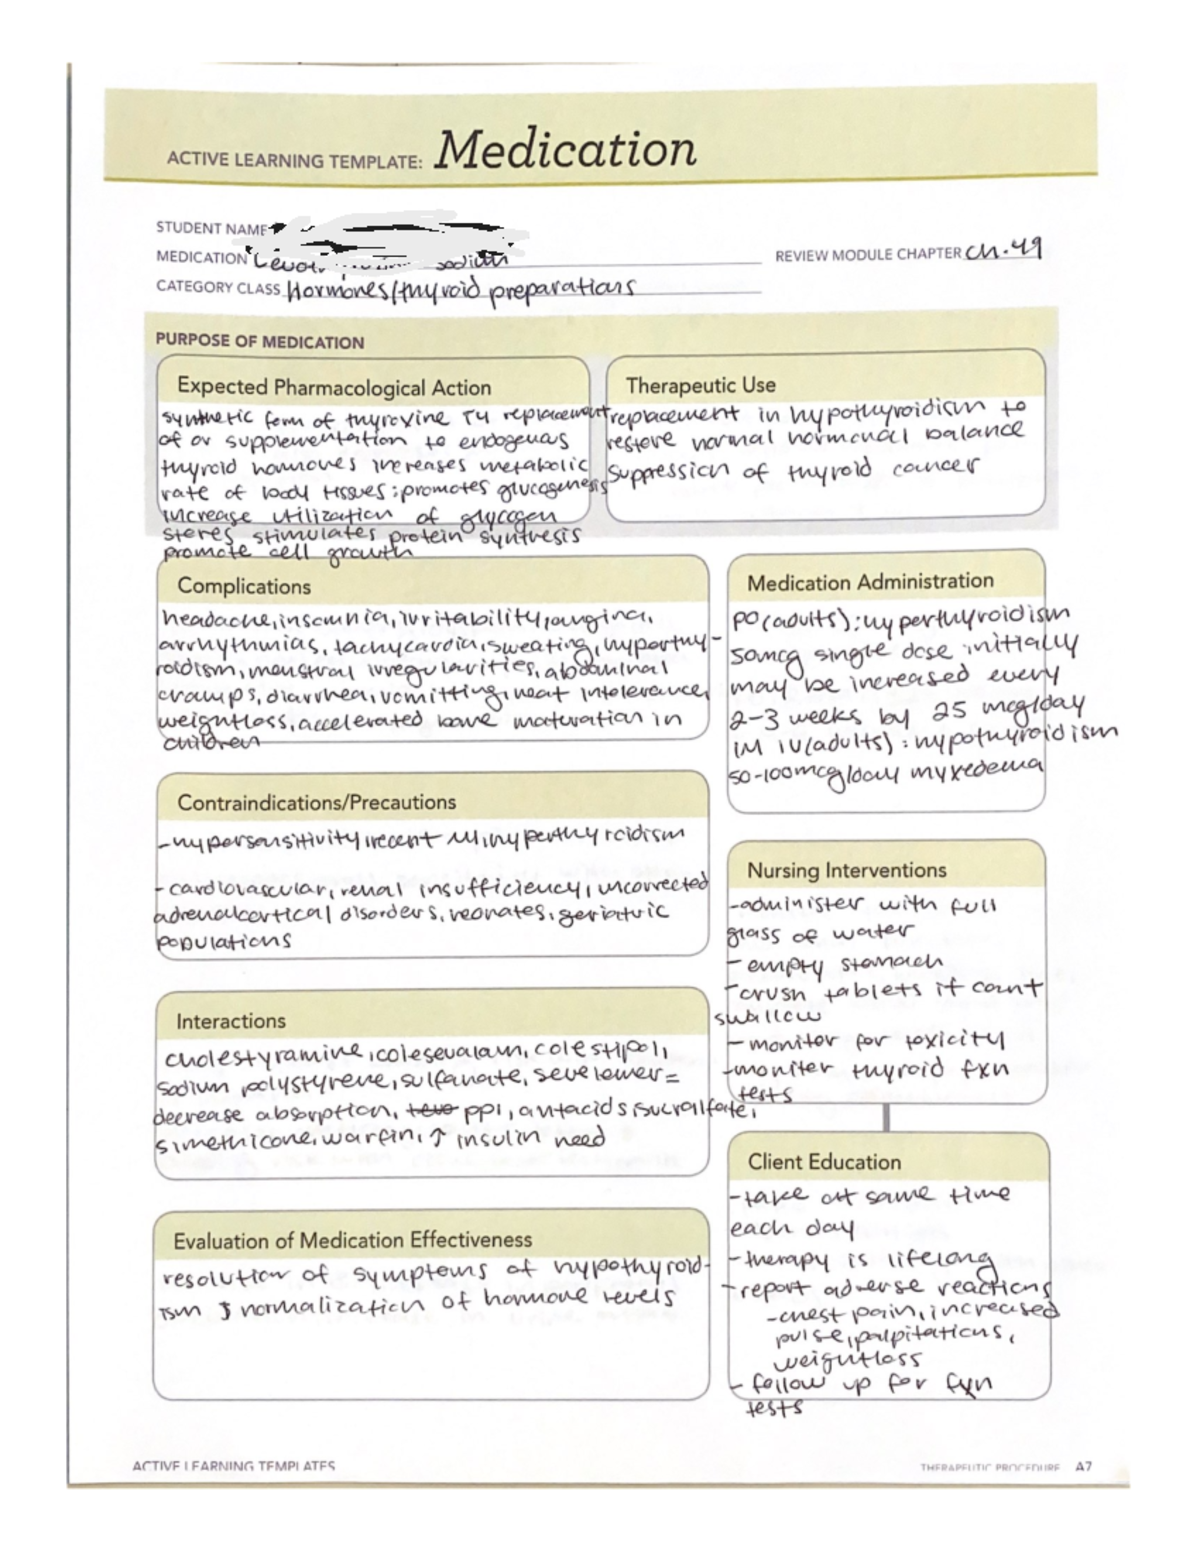 ACTIVE LEARNING TEMPLATE: Medication
STUDENT NAME
MEDICATION sodium
REVIEW MODULE CHAPTER Ch. 49
CATEGORY CLASS Hormones/thyroid preparations
PURPOSE OF MEDICATION
Expected Pharmacological Action
synthetic form of thyroxine T4 replacement
of or supplementation to endogenous
thyroid hormones increases metabolic
rate of body tissues; promotes glucogenesis
increase utilization of glycogen
stores stimulates protein synthesis
promote cell growth
Therapeutic Use
replacement in hypothyroidism to
restore normal hormonal balance
suppression of thyroid cancer
Complications
headache, insomnia, irritability, angina,
arrhythmias, tachycardia, sweating, hyperthy-
roidism, menstrual irregularities, abdominal
cramps, diarrhea, vomitting, heat intolerance,
weightloss, accelerated bone maturation in
children
Medication Administration
PO (adults): hyperthyroidism
50mcg single dose initially
may be increased every
2-3 weeks by 25 mcg/day
IM IV (adults): hypothyroidism
50-100mcg/day myxedema
Contraindications/Precautions
-hypersensitivity, recent MI, hyperthyroidism
-cardiovascular, renal insufficiency, uncorrected
adrenalcortical disorders, neonates, geriatric
populations
Nursing Interventions
-administer with full
glass of water
- empty stomach
-crush tablets if can't
swallow
- monitor for toxicity
-moniter thyroid fxn
tests
Interactions
cholestyramine, colesevalam, colestipol,
sodium polystyrene, sulfanate, sevelower =
decrease absorption, ppi, antacids, sucralfate,
simethicone, warfin, ↑ insulin need
Client Education
-take at same time
each day
-therapy is lifelong
-report adverse reactions
-chest pain, increased
pulse, palpitations,
weightloss
- follow up for fxn
tests
Evaluation of Medication Effectiveness
resolution of symptoms of hypothyroid-
ism & normalization of hormone levels
ACTIVE LEARNING TEMPLATES
THERAPEUTIC PROCEDURE A7